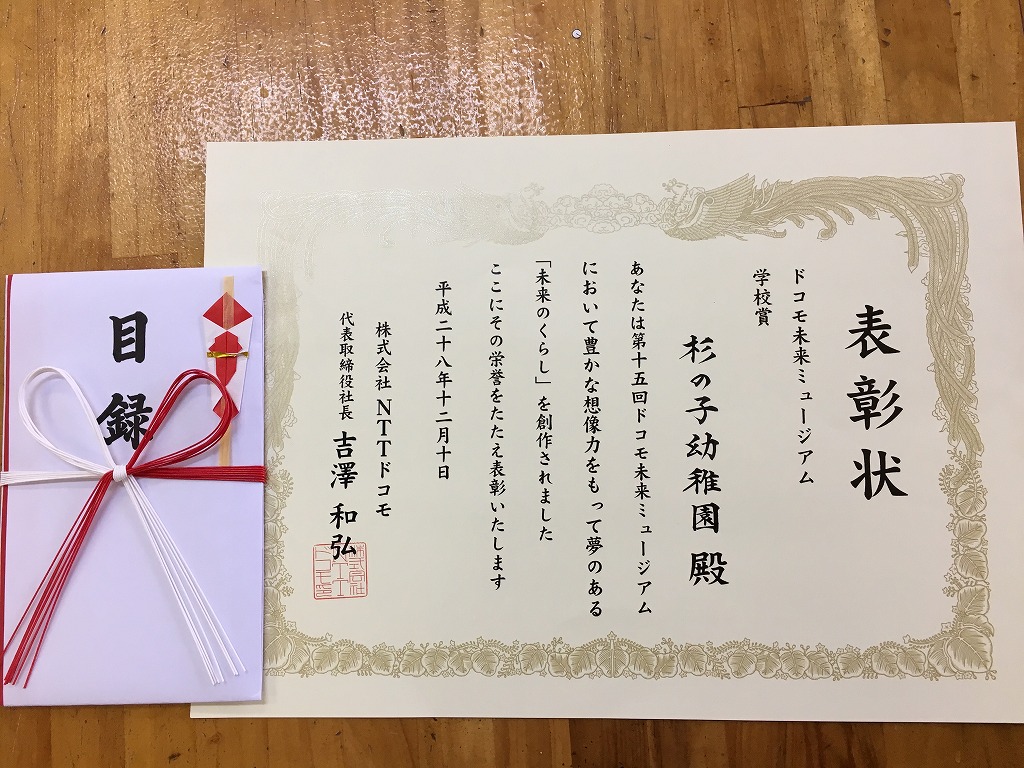 表彰状
ドコモ未来ミュージアム
学校賞
杉の子幼稚園 殿
あなたは第十五回ドコモ未来ミュージアム
において豊かな想像力をもって夢のある
「未来のくらし」を創作されました
ここにその栄誉をたたえ表彰いたします
平成二十八年十二月十日
株式会社NTTドコモ
代表取締役社長 吉澤 和弘
目録